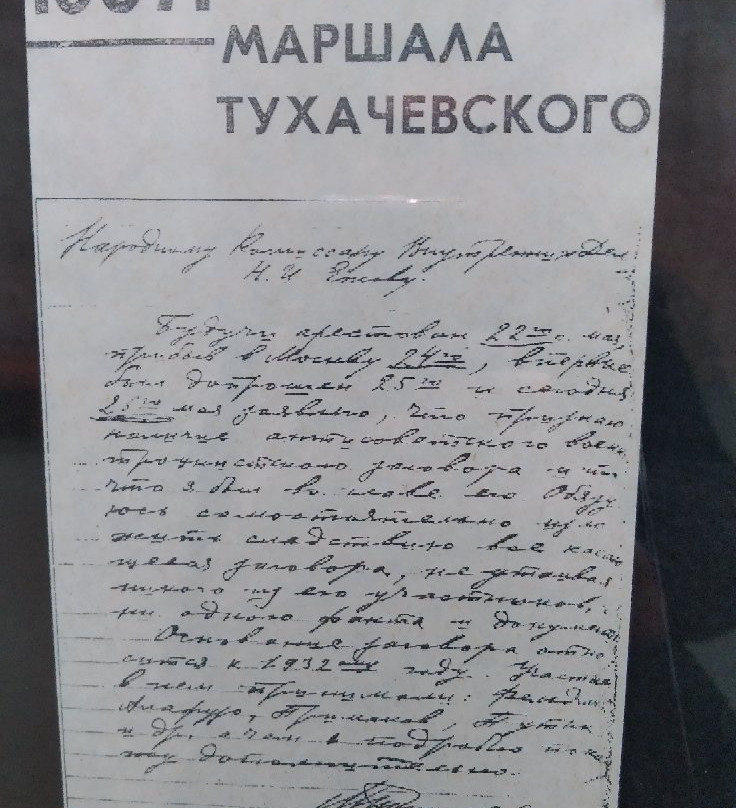 МАРШАЛА
ТУХАЧЕВСКОГО
Народному Комиссару Внутренних Дел
Н. И Ежову.
Будучи арестован 22го мая,
прибыв в Москву 24го, впервые
был допрошен 25го и сегодня
26го мая заявляю, что признаю
наличие антисоветского воен
троцкистского заговора и то
что я был во главе его Обязу
юсь самостоятельно изло
жить следствию все касаю
щееся заговора, не утаивая
никого из его участников,
ни одного факта и документа
Основание заговора отно
сится к 1932му году. Участие
в нем принимали: Фельдман
Алафузо, Примаков, Путна
и др., о чем я подробно пока
жу дополнительно.